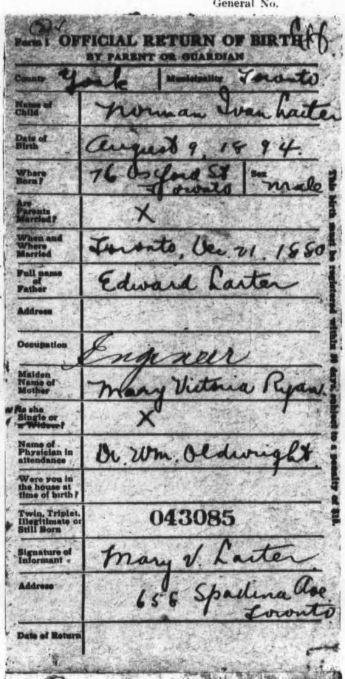 General No.
Form 1 OFFICIAL RETURN OF BIRTH
BY PARENT OR GUARDIAN
County York Municipality Toronto
Name of Child Norman Ivan Larter
Date of Birth August 9, 1894.
Where Born? 76 Oxford St Toronto Sex Male
Are Parents Married? X
When and Where Married Toronto, Dec. 21. 1880
Full name of Father Edward Larter
Address
Occupation Engineer
Maiden Name of Mother Mary Victoria Ryan
Is she Single or a Widow? X
Name of Physician in attendance Dr. Wm. Oldwright
Were you in the house at time of birth?
Twin, Triplet, Illegitimate or Still Born 043085
Signature of Informant Mary V. Larter
Address 658 Spadina Ave
Toronto
Date of Return
This birth must be registered within 30 days, subject to a penalty of